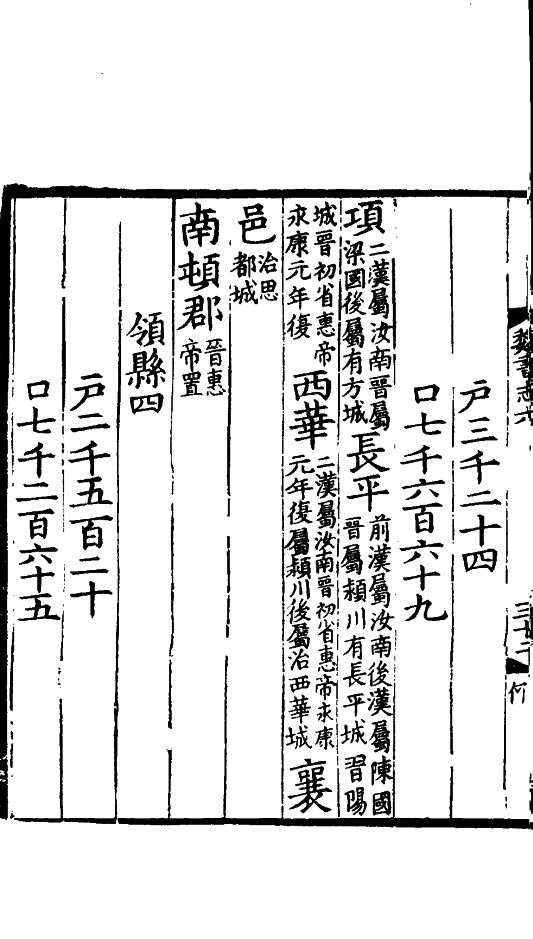 魏書志六 三十二 何
戶三千二十四
口七千六百六十九
項二漢屬汝南晉屬梁國後屬有方城長平前漢屬汝南後漢屬陳國晉屬潁川有長平城習陽
城晉初省惠帝永康元年復西華二漢屬汝南晉初省惠帝永康元年復屬潁川後屬治西華城襄
邑治思都城
南頓郡晉惠帝置
領縣四
戶二千五百二十
口七千二百六十五